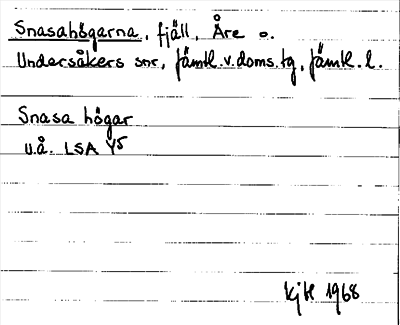 Snasahögarna, fjäll, Åre o.
Undersåkers snr, Jämtl.v.doms.tg, Jämtl. l.
Snasa högar
u.å. LSA Y5
KjH 1968